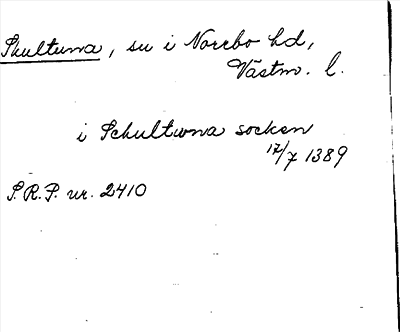 Skultuna, sn i Norrbo hd,
Västm. l.
i Schultwna socken
17/7 1389
S.R.P. nr. 2410